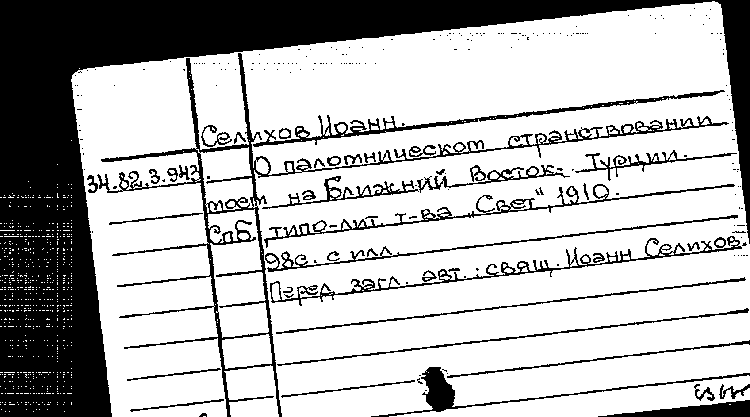 Селихов, Иоанн.
34.82.3.943. О паломническом странствовании
моем на Ближний Восток. Турции.
СПБ., типо-лит. т-ва „Свет“, 1910.
98с. с илл.
Перед загл. авт.: свящ. Иоанн Селихов.